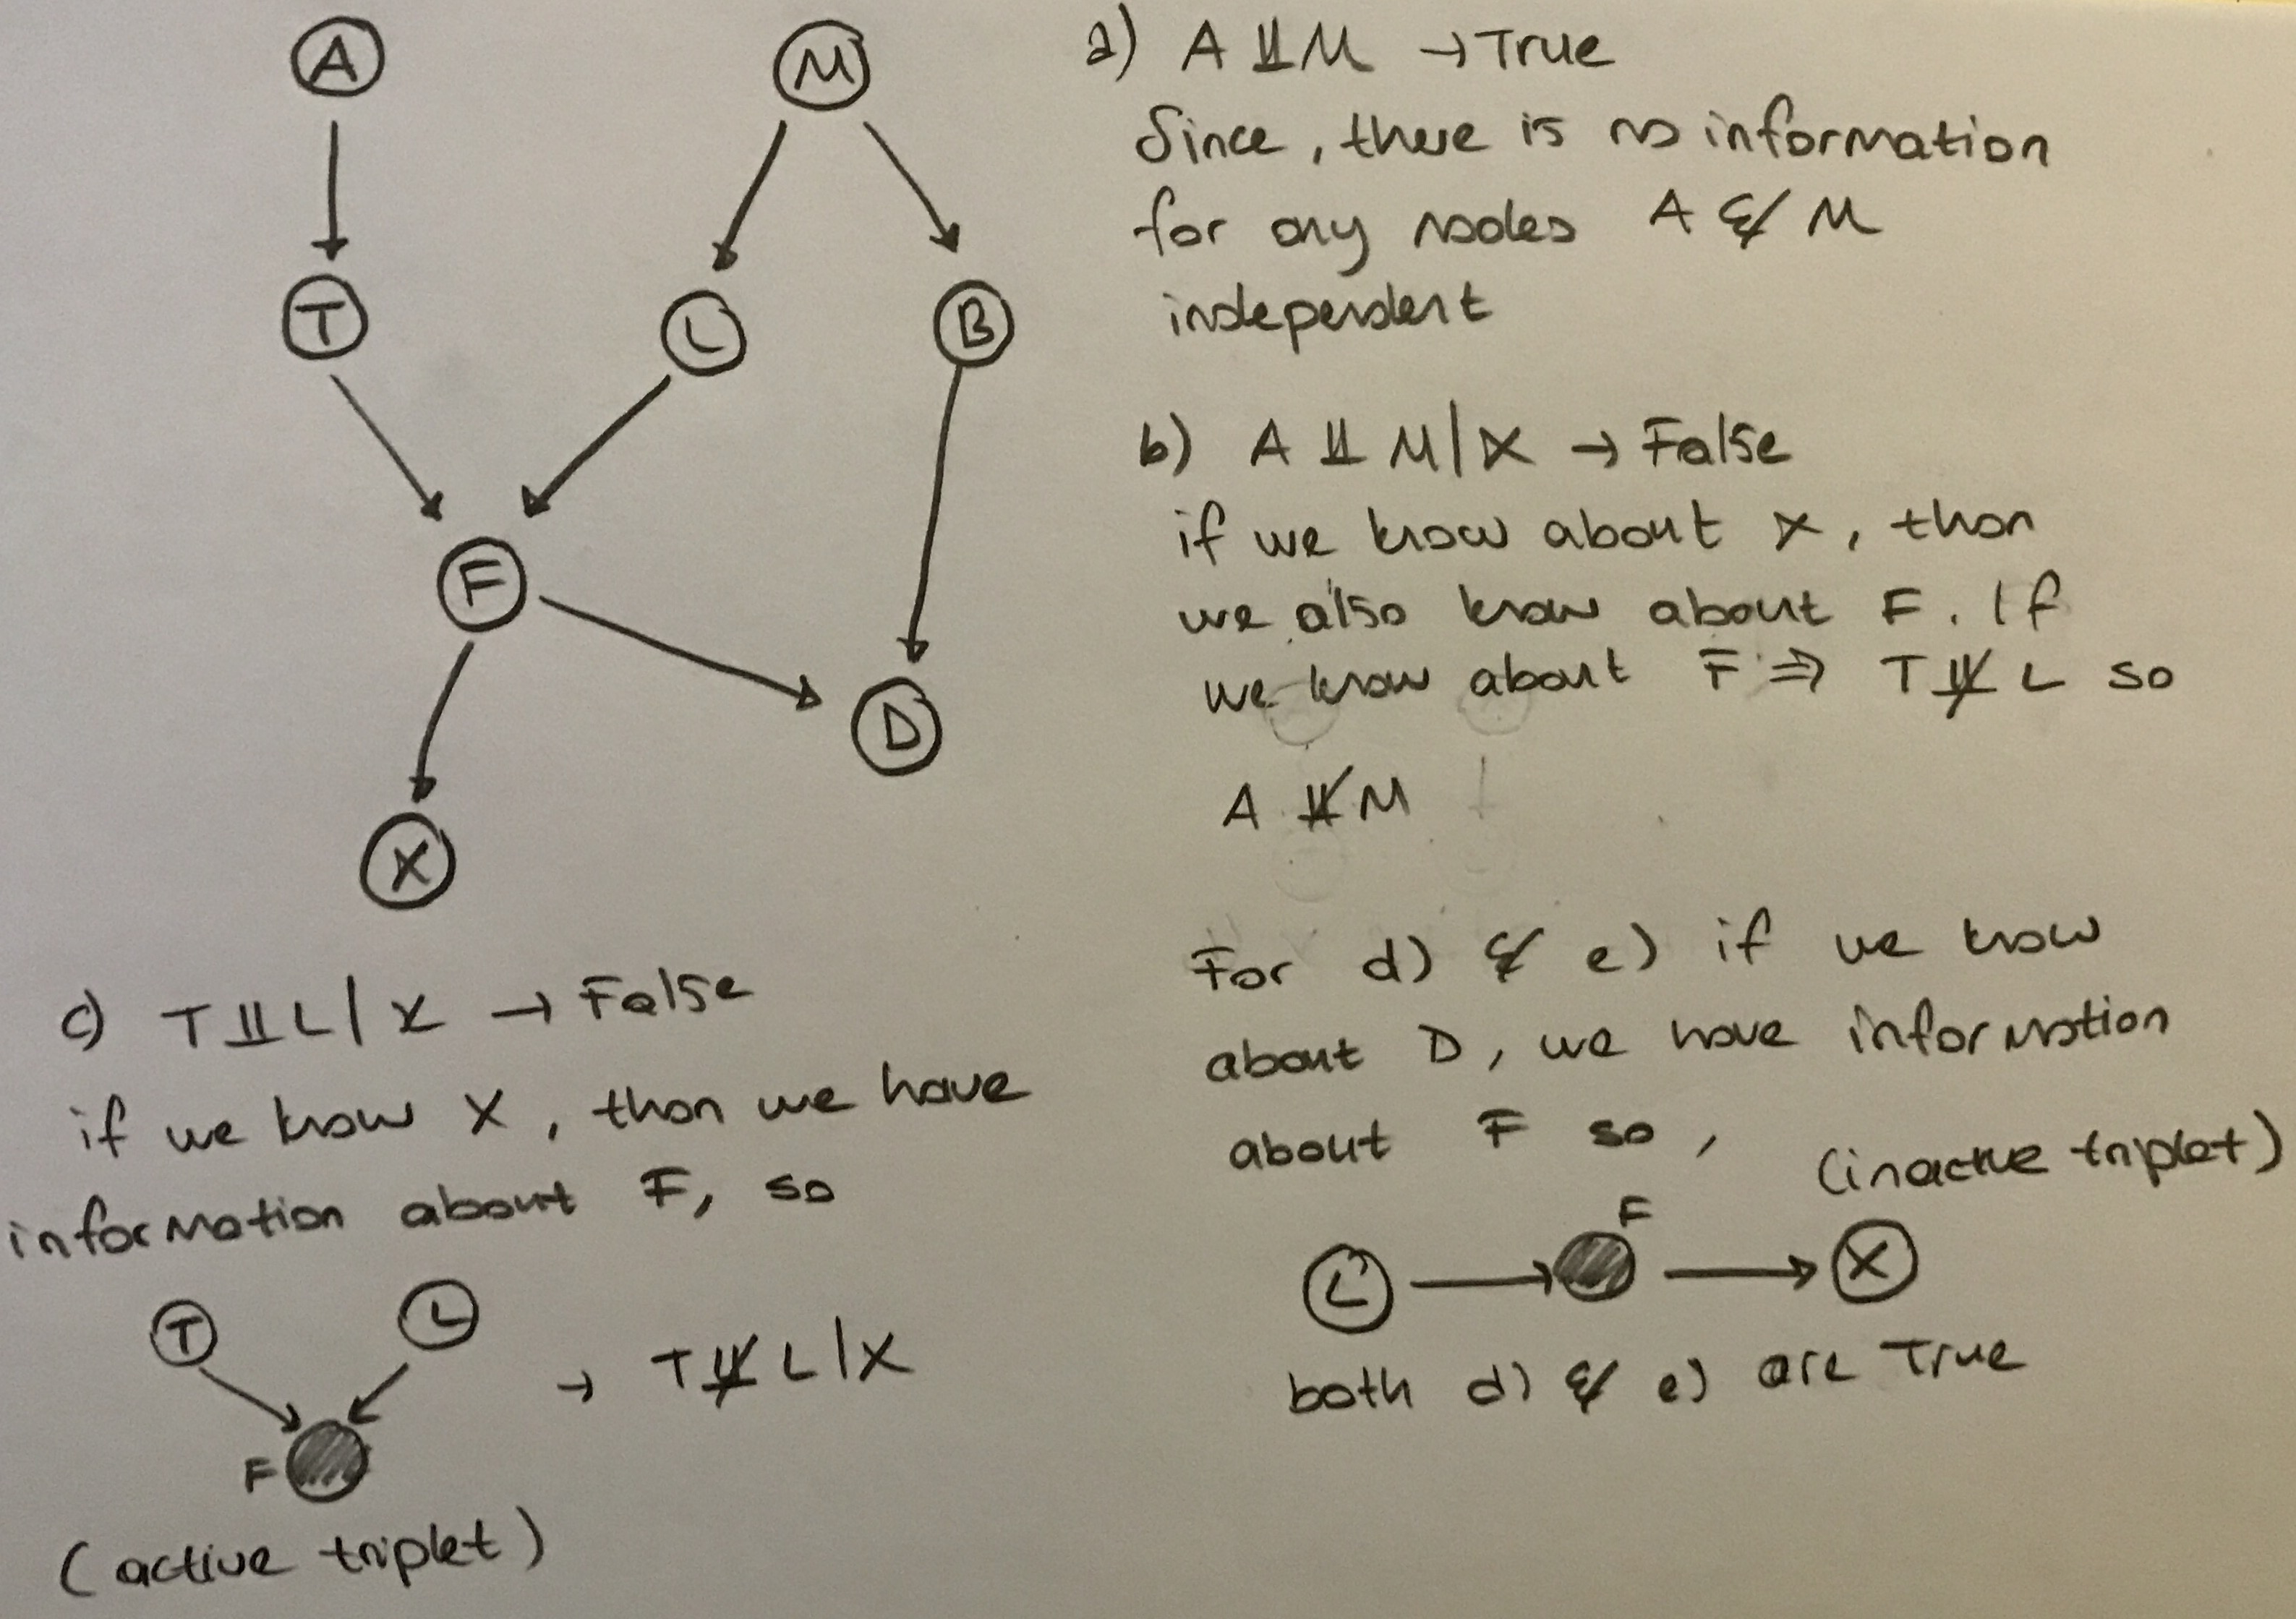 A
M
T
L
B
F
D
X
a) A ⫫ M → True
Since, there is no information
for any nodes A & M
independent
b) A ⫫ M | X → False
if we know about X, than
we also know about F. If
we know about F ⇒ T ⫫̸ L so
A ⫫̸ M
c) T ⫫ L | X → False
if we know X, than we have
information about F, so
T
L
F
→ T ⫫̸ L | X
(active triplet)
For d) & e) if we know
about D, we have information
about F so,
(inactive triplet)
F
L
X
both d) & e) are True